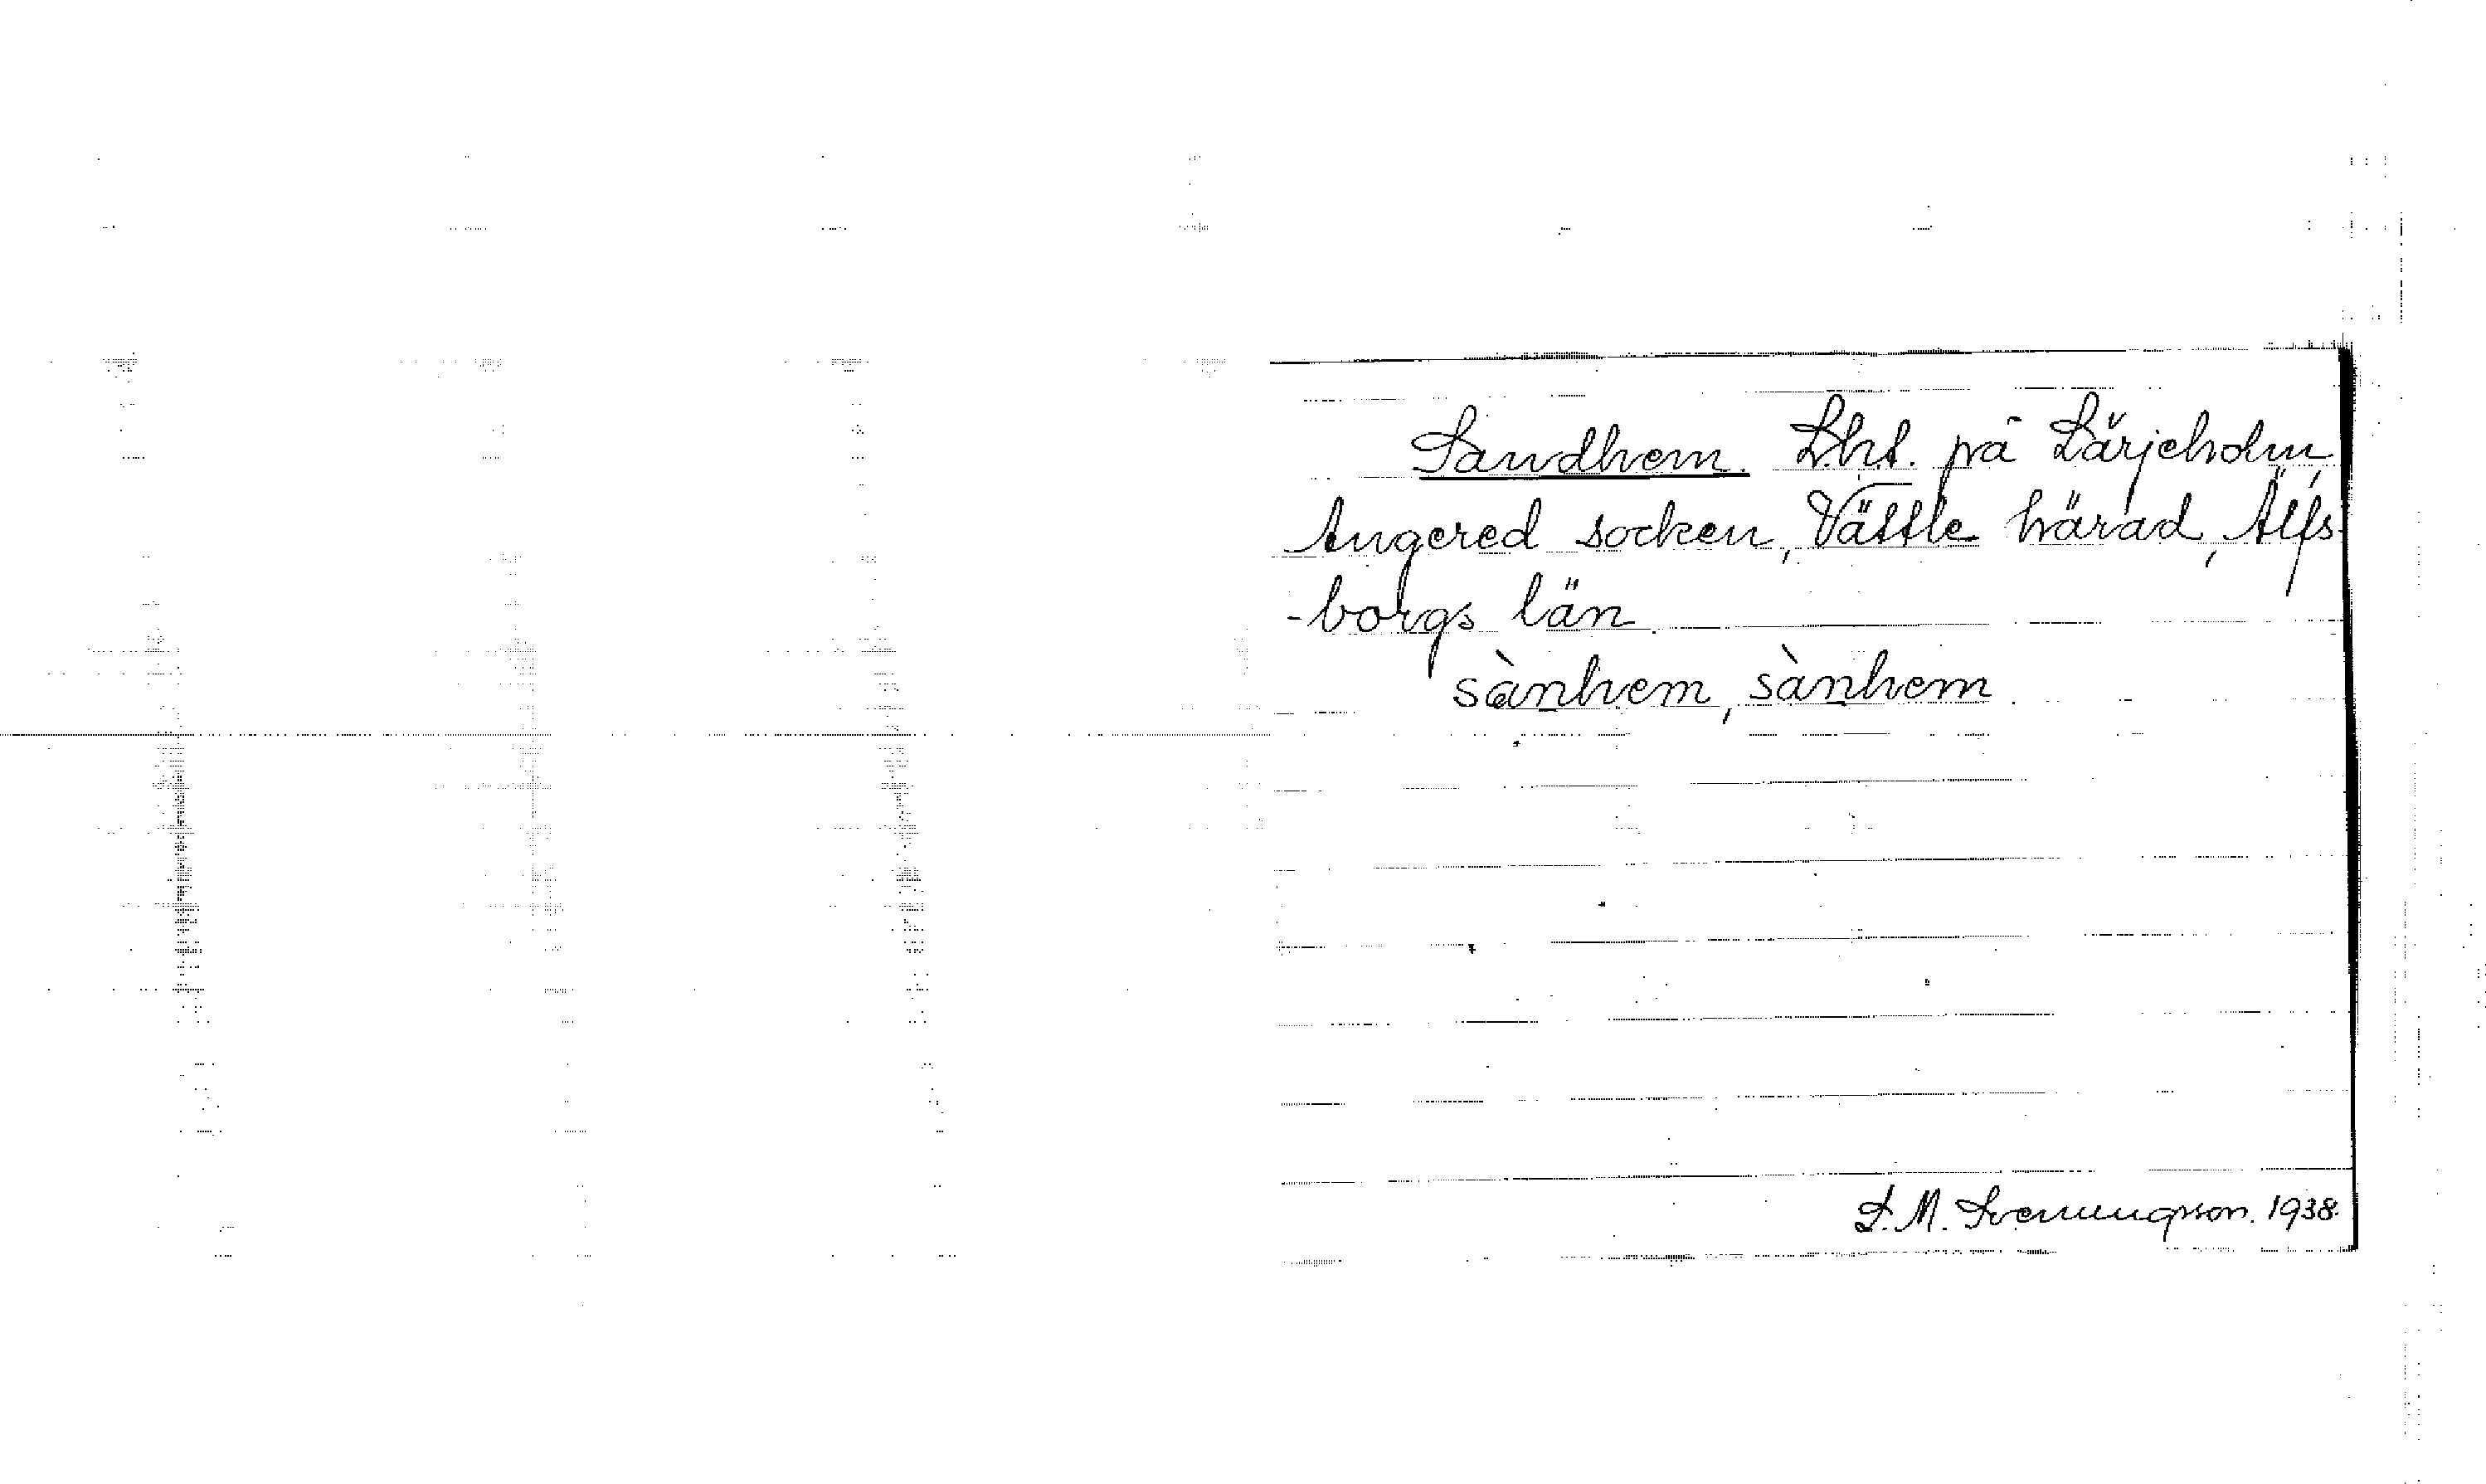 Sandhem. L.ht. på Lärjeholm,
Angered socken, Vättle härad, Älfs-
-borgs län.
sànhem, sànhem
S. M. Svenungsson. 1938.